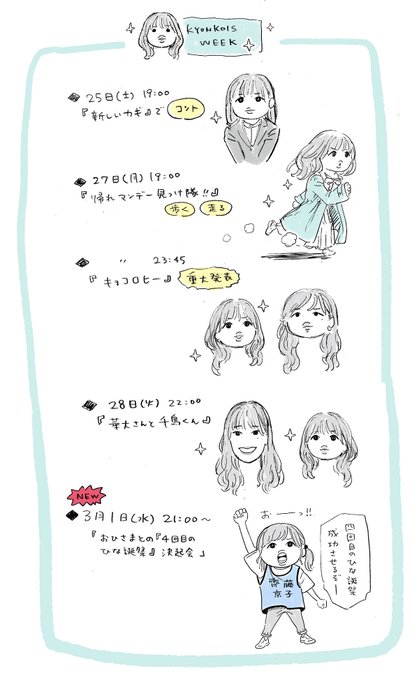 KYONKOIS
WEEK
25日(土) 19:00
『新しいカギ』で コント
27日(月) 19:00
『帰れマンデー見つけ隊!!』
歩く 走る
〃 23:45
『キョコロヒー』重大発表
28日(火) 22:00
『華大さんと千鳥くん』
NEW
3月1日(水) 21:00〜
『おひさまとの『4回目の
ひな誕祭』決起会」
おーーっ!!
四回目のひな誕祭
成功させるぞー
齊藤
京子